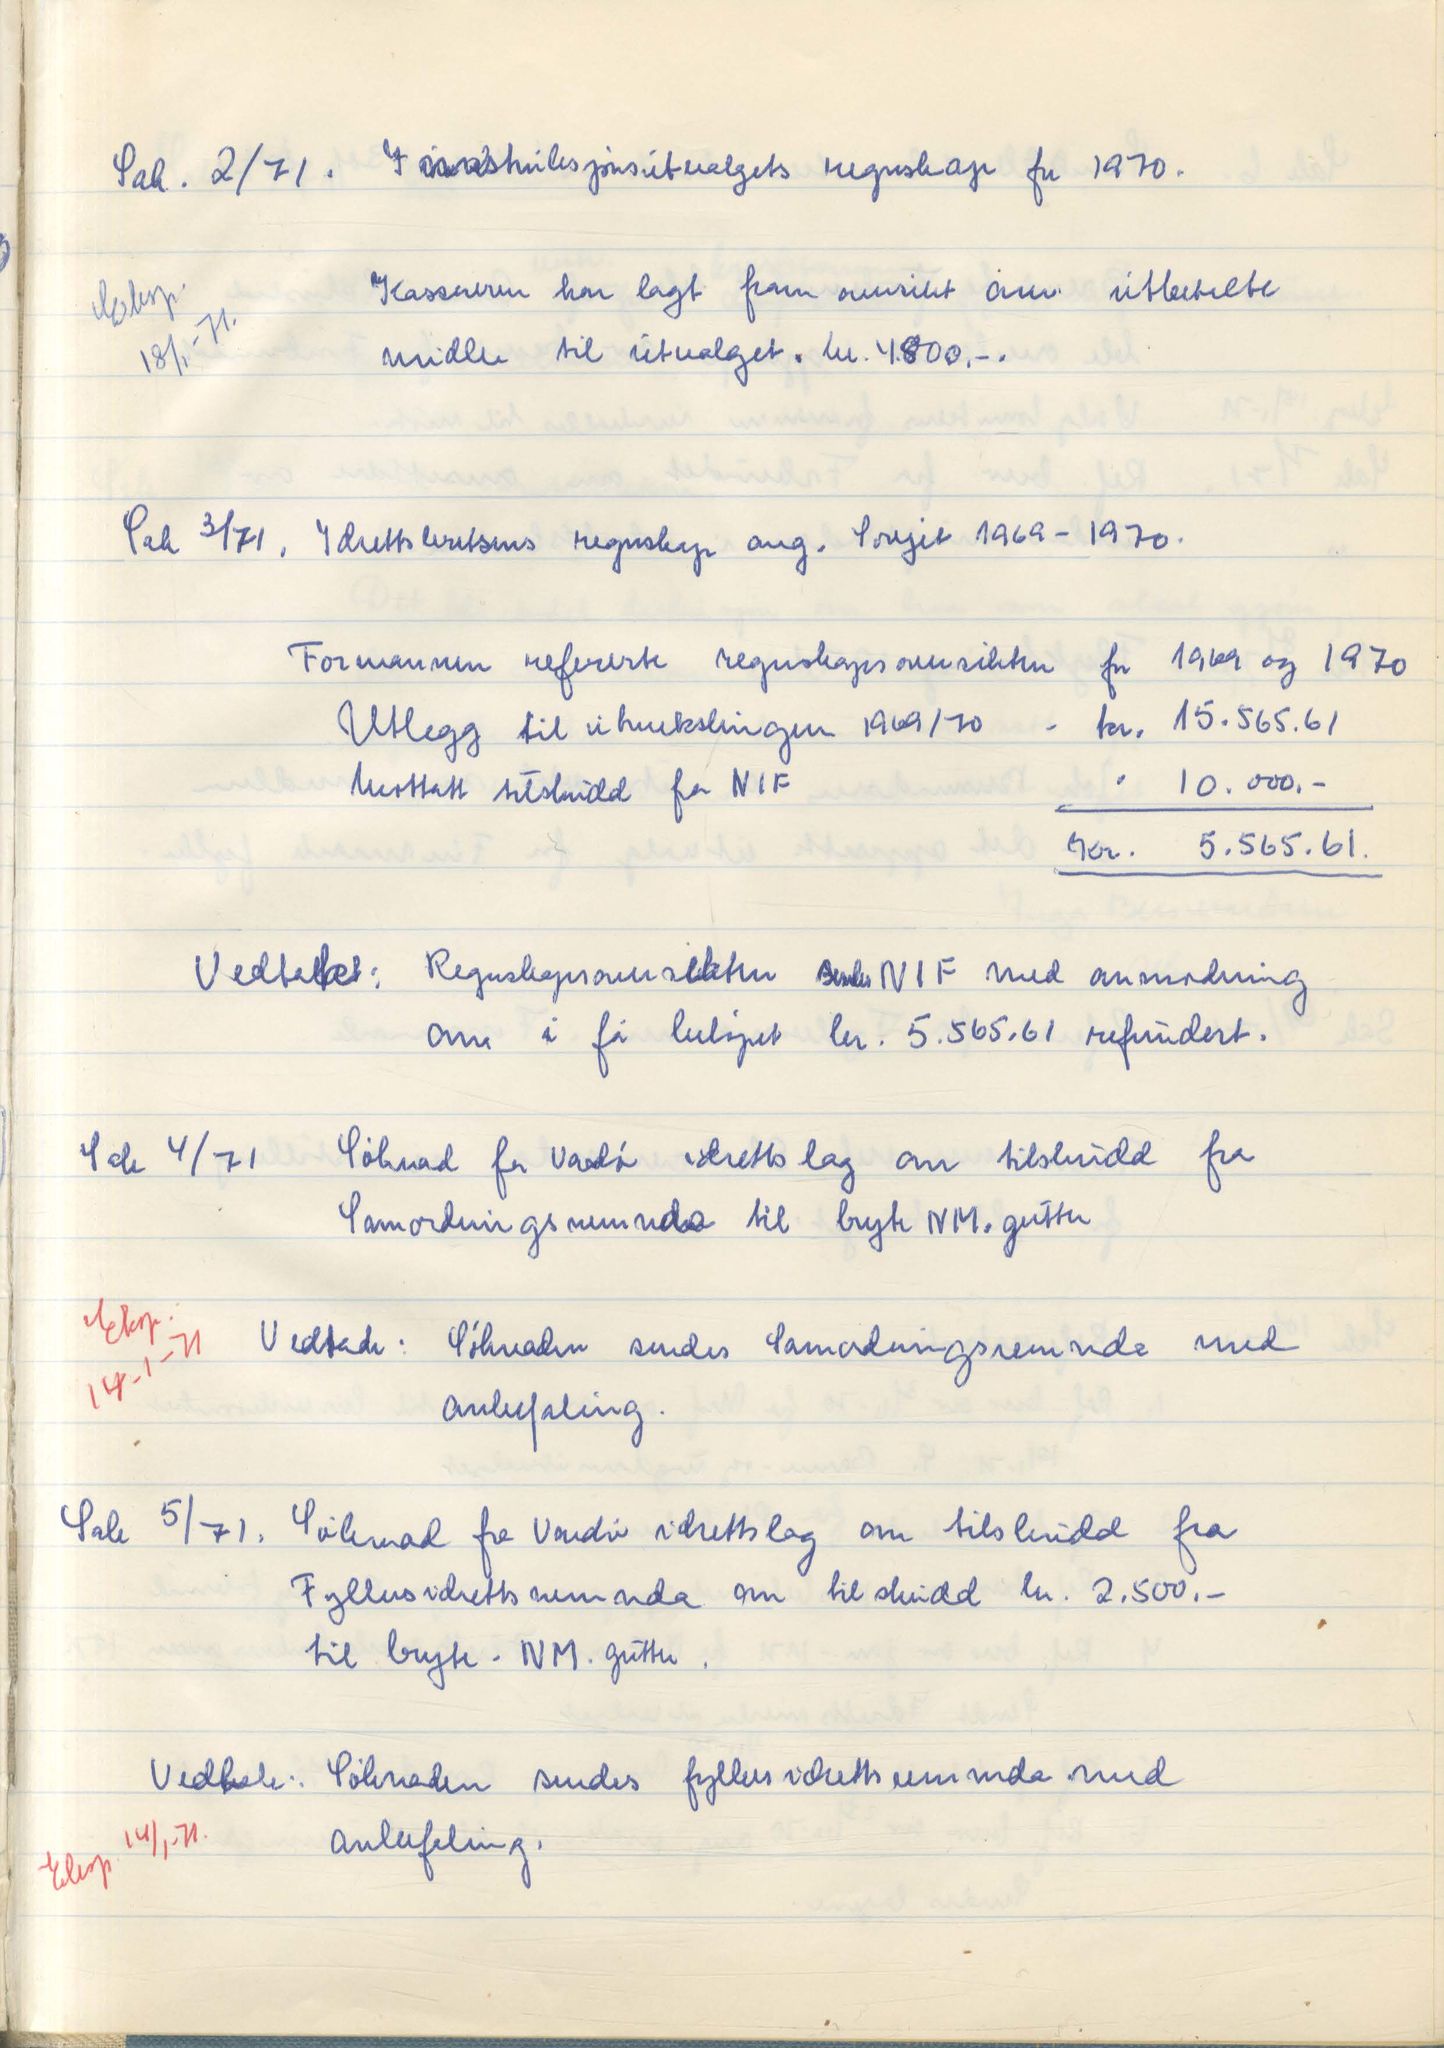 Sak. 2/71. Instruksjonsutvalgets regnskap for 1970.
Eksp. 18/1-71.
Kassereren har lagt fram oversikt over utbetalte
midler til utvalget. kr. 4.800.-.
Sak 3/71. Idrettskretsens regnskap ang. Sovjet 1969-1970.
Formannen refererte regnskapsoversikten for 1969 og 1970
Utlegg til utvekslingen 1969/70 - kr. 15.565.61
Mottatt tilskudd fra NIF " 10.000.-
Kr. 5.565.61.
Vedtak: Regnskapsoversikten sendes NIF med anmodning
om å få beløpet kr. 5.565.61 refundert.
Sak 4/71 Søknad fra Vardø idrettslag om tilskudd fra
Samordningsnemnda til bryte NM. gutter
Eksp. 14-1-71
Vedtak: Søknaden sendes Samordningsnemnda med
anbefaling.
Sak 5/71. Søknad fra Vardø idrettslag om tilskudd fra
Fylkesidrettsnemnda om tilskudd kr. 2.500.-
til bryte. NM. gutter.
Vedtak: Søknaden sendes fylkesidrettsnemnda med
anbefaling.
Eksp. 14/1-71.